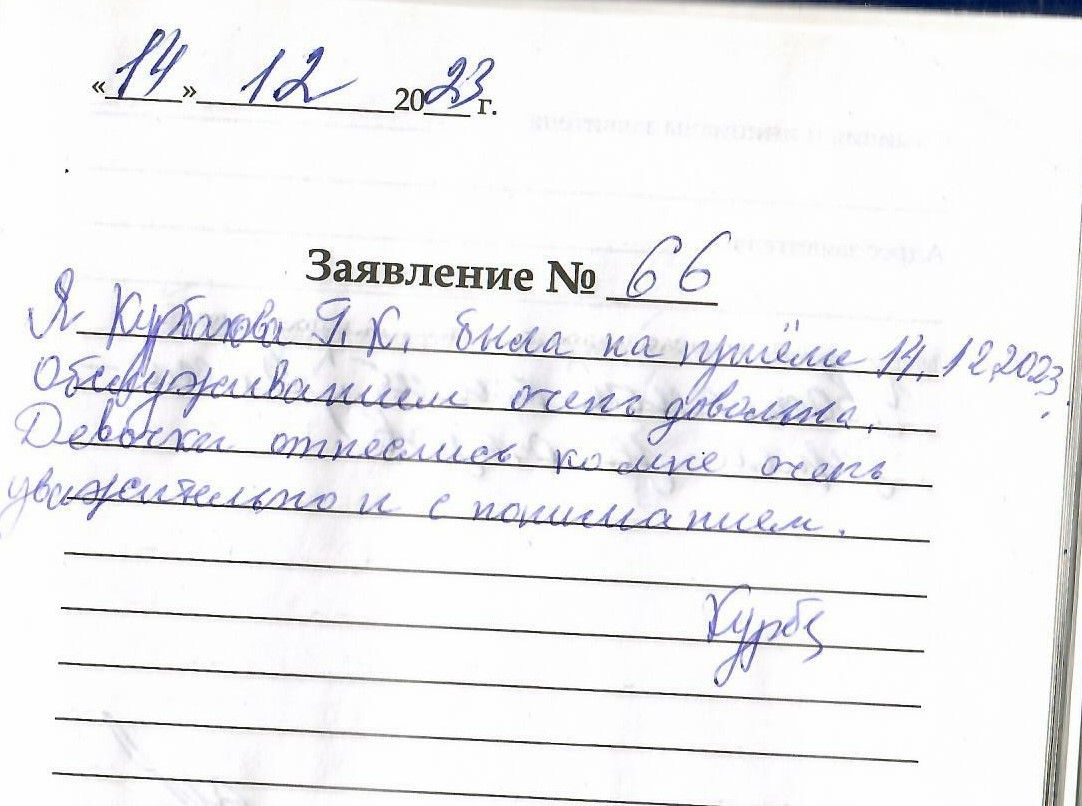 «14» 12 2023 г.
Заявление № 66
Я Курбанова Г. К. была на приёме 14.12.2023.
Обслуживанием очень довольна.
Девочки отнеслись ко мне очень
уважительно и с пониманием.